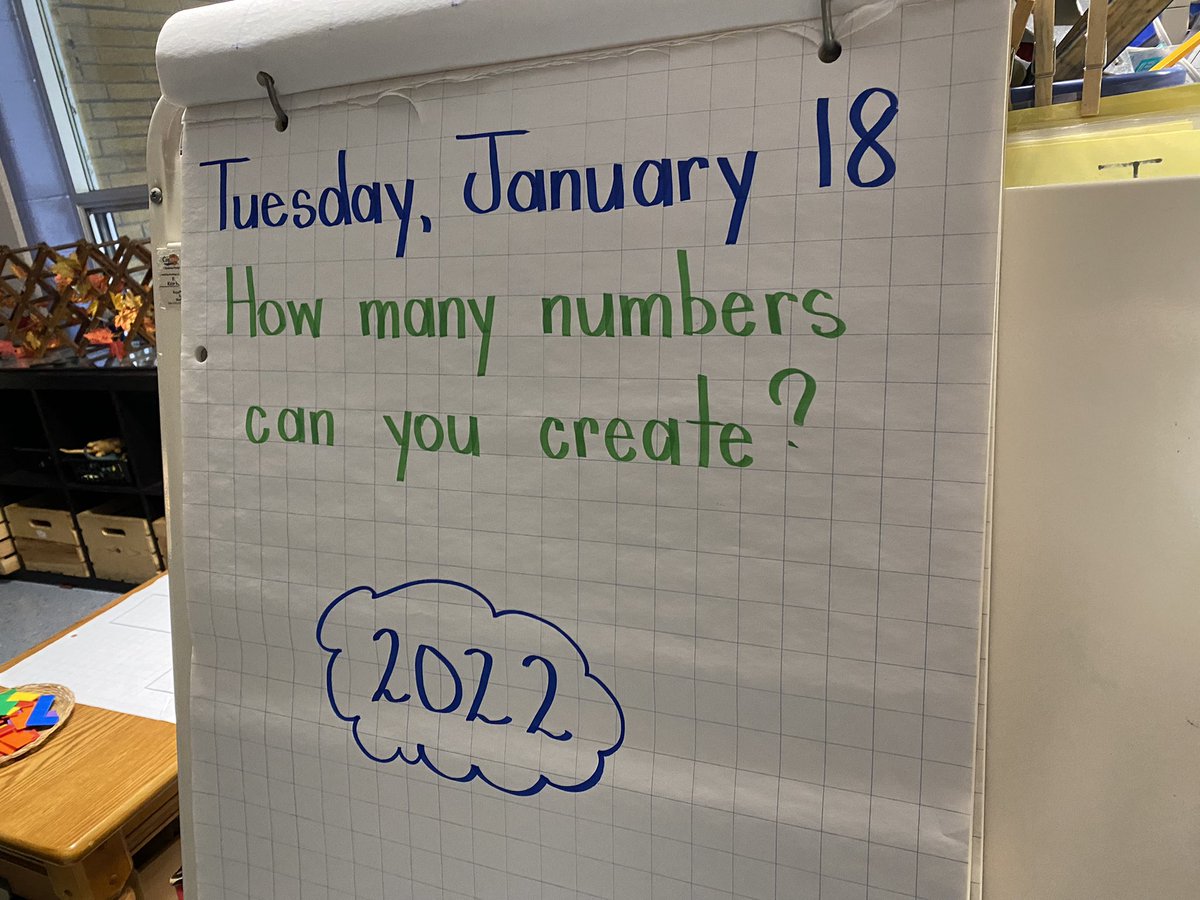 Tuesday, January 18
How many numbers
can you create?
2022